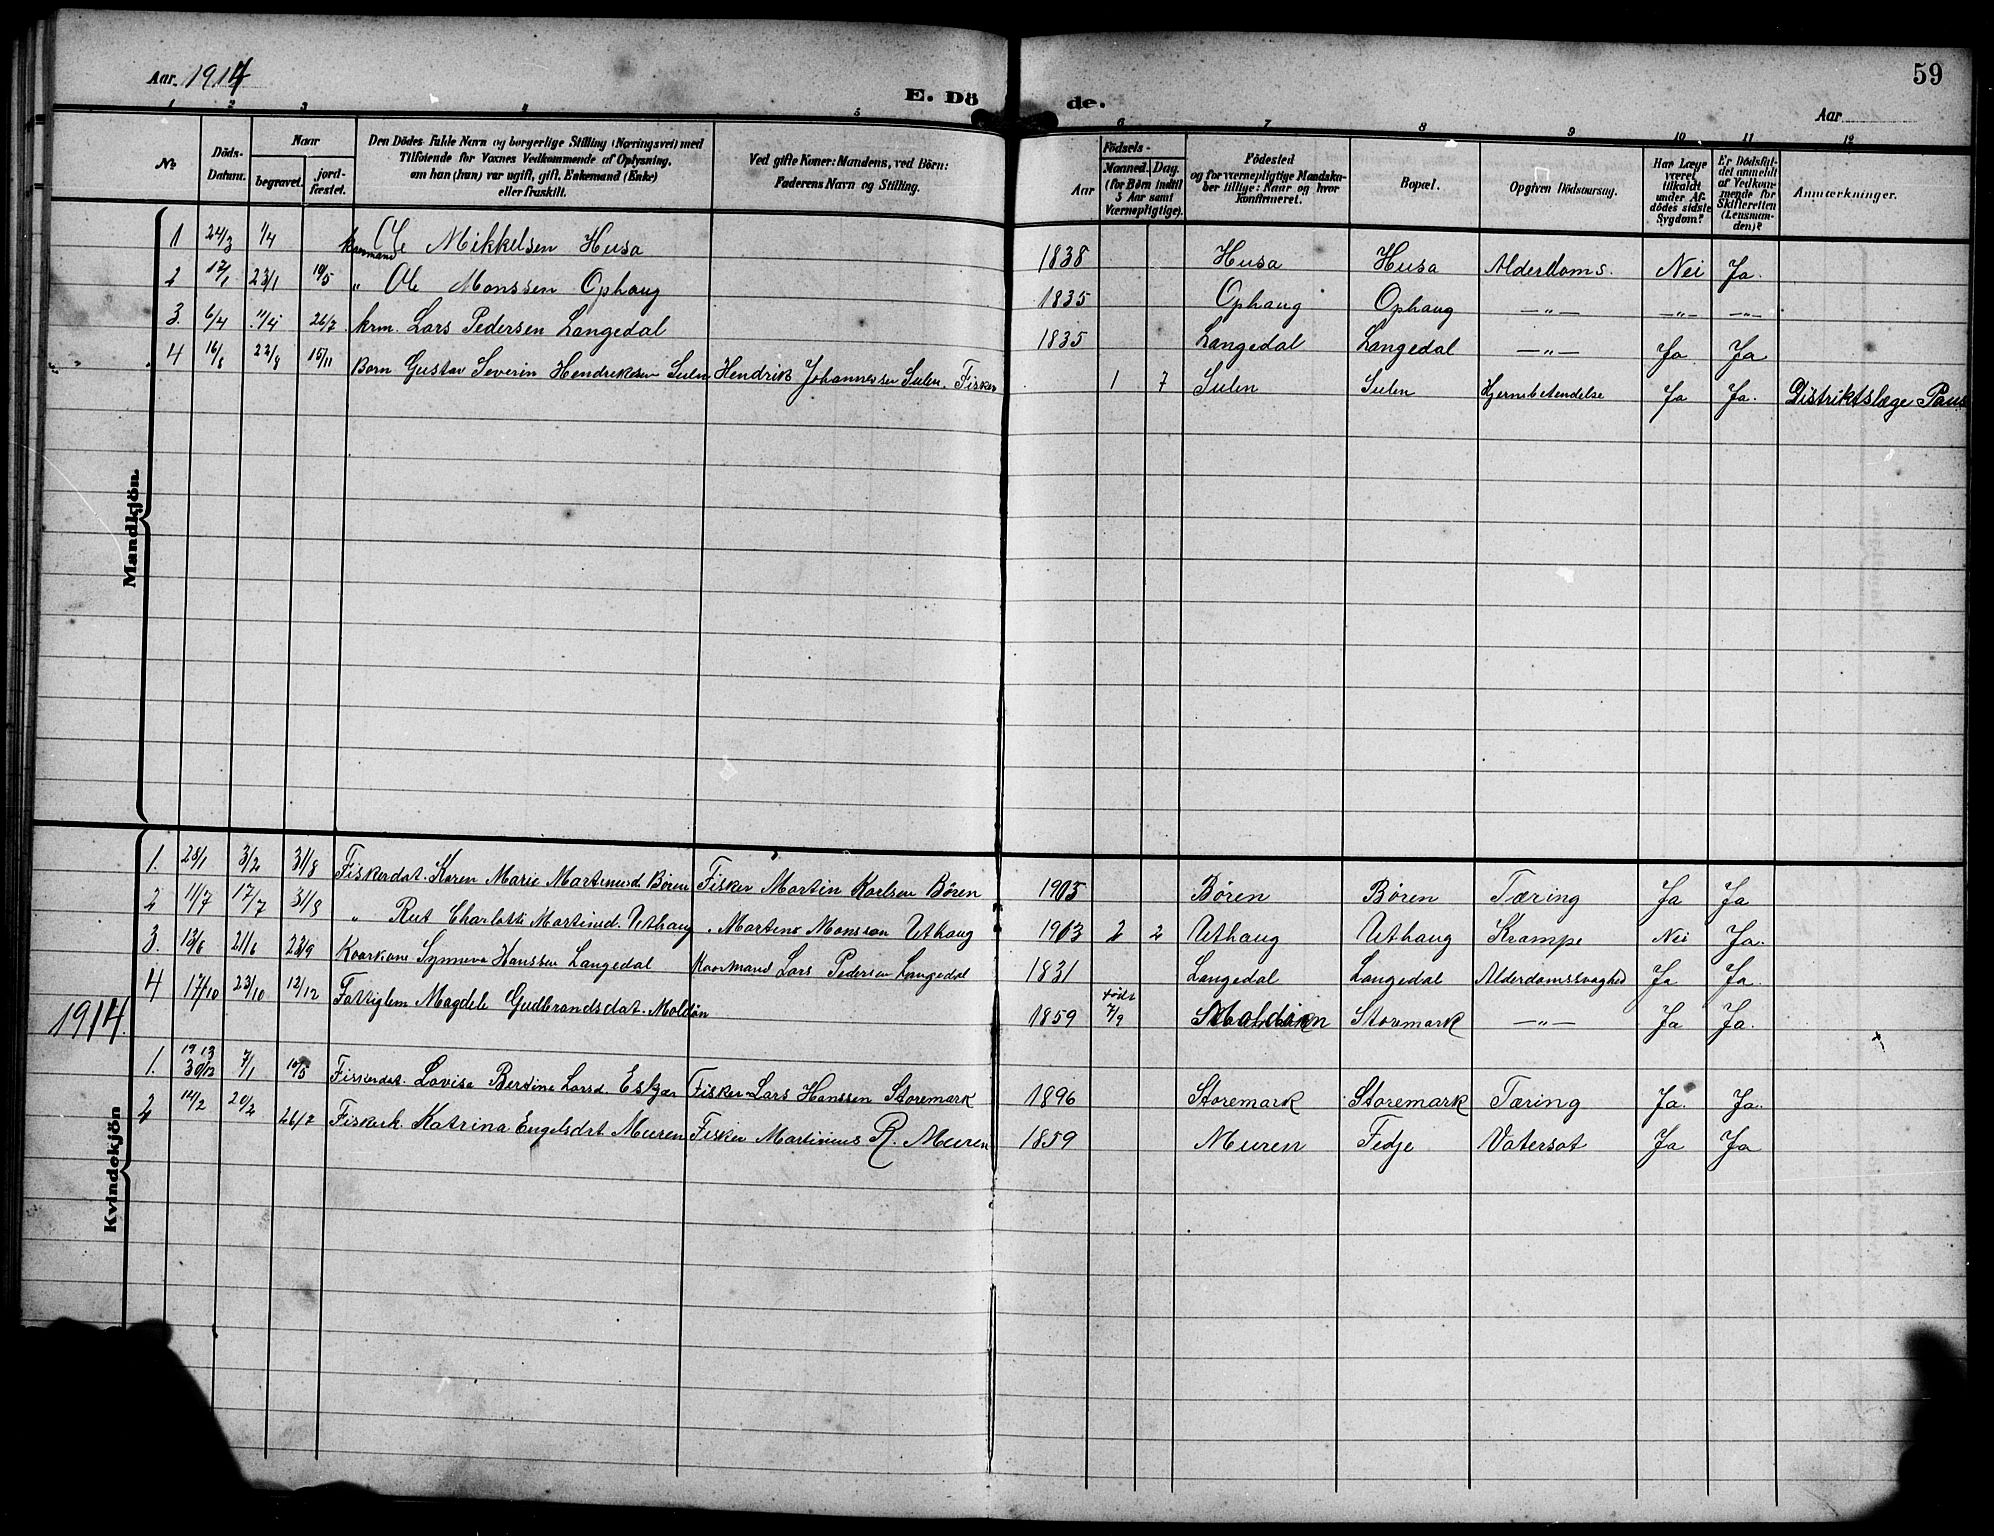 Aar. 1914
E. Dö de.
Aar
59
1 2 3 4 5 6 7 8 9 10 11 12
No
Döds-Datum.
Naar
begravet.
jord-fæstet.
Den Dödes Fulde Navn og borgerlige Stilling (Næringsvei) med
Tilföiende for Voxnes Vedkommende af Oplysning,
om han (hun) var ugift, gift, Enkemand (Enke)
eller fraskilt.
Ved gifte Koner: Mandens, ved Börn:
Faderens Navn og Stilling.
Födsels-
Aar
Maaned. Dag.
(for Börn indtil
5 Aar samt
Værnepligtige).
Födested
og for værnepligtige Mandska-
ber tillige: Naar og hvor
konfirmeret.
Bopæl.
Opgiven Dödsaarsag.
Har Læge
været
tilkaldt
under Af-
dödes sidste
Sygdom?
Er Dödsfal-
det anmeldt
af Vedkom-
mende for
Skifteretten
(Lensman-
den)?
Anmærkninger.
Mandkjön.
1 24/3 1/4 Ole Mikkelsen Husa 1838 Husa Husa Alderdoms. Nei Ja.
2 17/1 23/1 10/5 " Ole Monssen Ophaug 1835 Ophaug Ophaug —"— —"— —"—
3. 6/4 11/4 26/7 krm. Lars Pedersen Langedal 1835 Langedal Langedal —"— Ja Ja
4 16/8 22/8 15/11 Barn Gustav Severin Hendriksen Sulen Hendrik Johannessen Sulen. Fisker 1 7 Sulen Sulen Hjernebetendelse Ja Ja. Distriktslæge Paus
Kvindekjön
1. 28/1 3/2 31/8 Fiskerdat. Karen Marie Martinusd. Børen Fisker Martin Karlsen Børen 1905 Børen Børen Tæring Ja Ja
2 11/7 17/7 31/8 " Rut Charlotte Martinsd. Uthaug " Martens Monsson Uthaug 1913 2 2 Uthaug Uthaug Krampe Nei Ja.
3. 13/6 21/6 23/9 Kaarkone Synneva Hanssen Langedal Kaarmand Lars Pedersen Langedal 1831 Langedal Langedal Alderdomssvaghed Ja Ja.
4 17/10 23/10 12/12 Fattiglem Magdele Gudbrandsdat. Moldøn 1859 født 7/9 Storemark —"— Ja Ja.
1914.
1. 1913 30/12 7/1 10/5 Fiskerdat. Lovise Berdine Larsd. Fisker Lars Hanssen Storemark 1896 Storemark Storemark Tæring Ja. Ja.
2 14/2 20/2 26/7 Fiskerk. Katrina Engelsdat Muren Fisker Martinius R. Muren 1859 Muren Fedje Vatersot Ja Ja